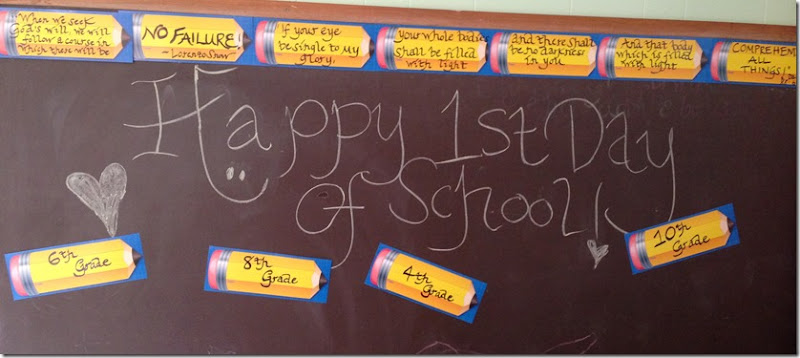 When we seek
God's will, we will
follow a course in
which there will be
NO FAILURE!
- Lorenzo Snow
If your eye
be single to my
glory,
your whole bodies
shall be filled
with light
and there shall
be no darkness
in you
And that body
which is filled
with light
COMPREHEN
ALL
THINGS!"
Happy 1st Day
of School!
6th
Grade
8th
Grade
4th
Grade
10th
Grade